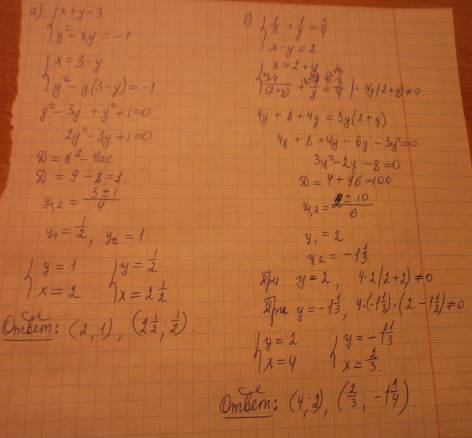 а) { x + y = 3
y² − xy = −1
{ x = 3 − y
y² − y(3 − y) = −1
y² − 3y + y² + 1 = 0
2y² − 3y + 1 = 0
D = b² − 4ac
D = 9 − 8 = 1
y₁,₂ = (3 ± 1)/4
y₁ = 1/2, y₂ = 1
{ y = 1 { y = 1/2
x = 2 x = 2 1/2
Ответ: (2; 1), (2 1/2; 1/2).
{ 1/x + 1/y = 3/4
x − y = 2
{ x = 2 + y
4y + 8 + 4y = 3y(2 + y)
4y + 8 + 4y − 6y − 3y² = 0
3y² − 2y − 8 = 0
D = 4 + 96 = 100
y₁,₂ = (2 ± 10)/6
y₁ = 2
y₂ = −1 1/3
При y = 2, 4·2(2+2) ≠ 0
При y = −1 1/3, 4·(−1 1/3)·(2 − 1 1/3) ≠ 0
{ y = 2 { y = −1 1/3
x = 4 x = 2/3.
Ответ: (4; 2), (2/3; −1 1/4).